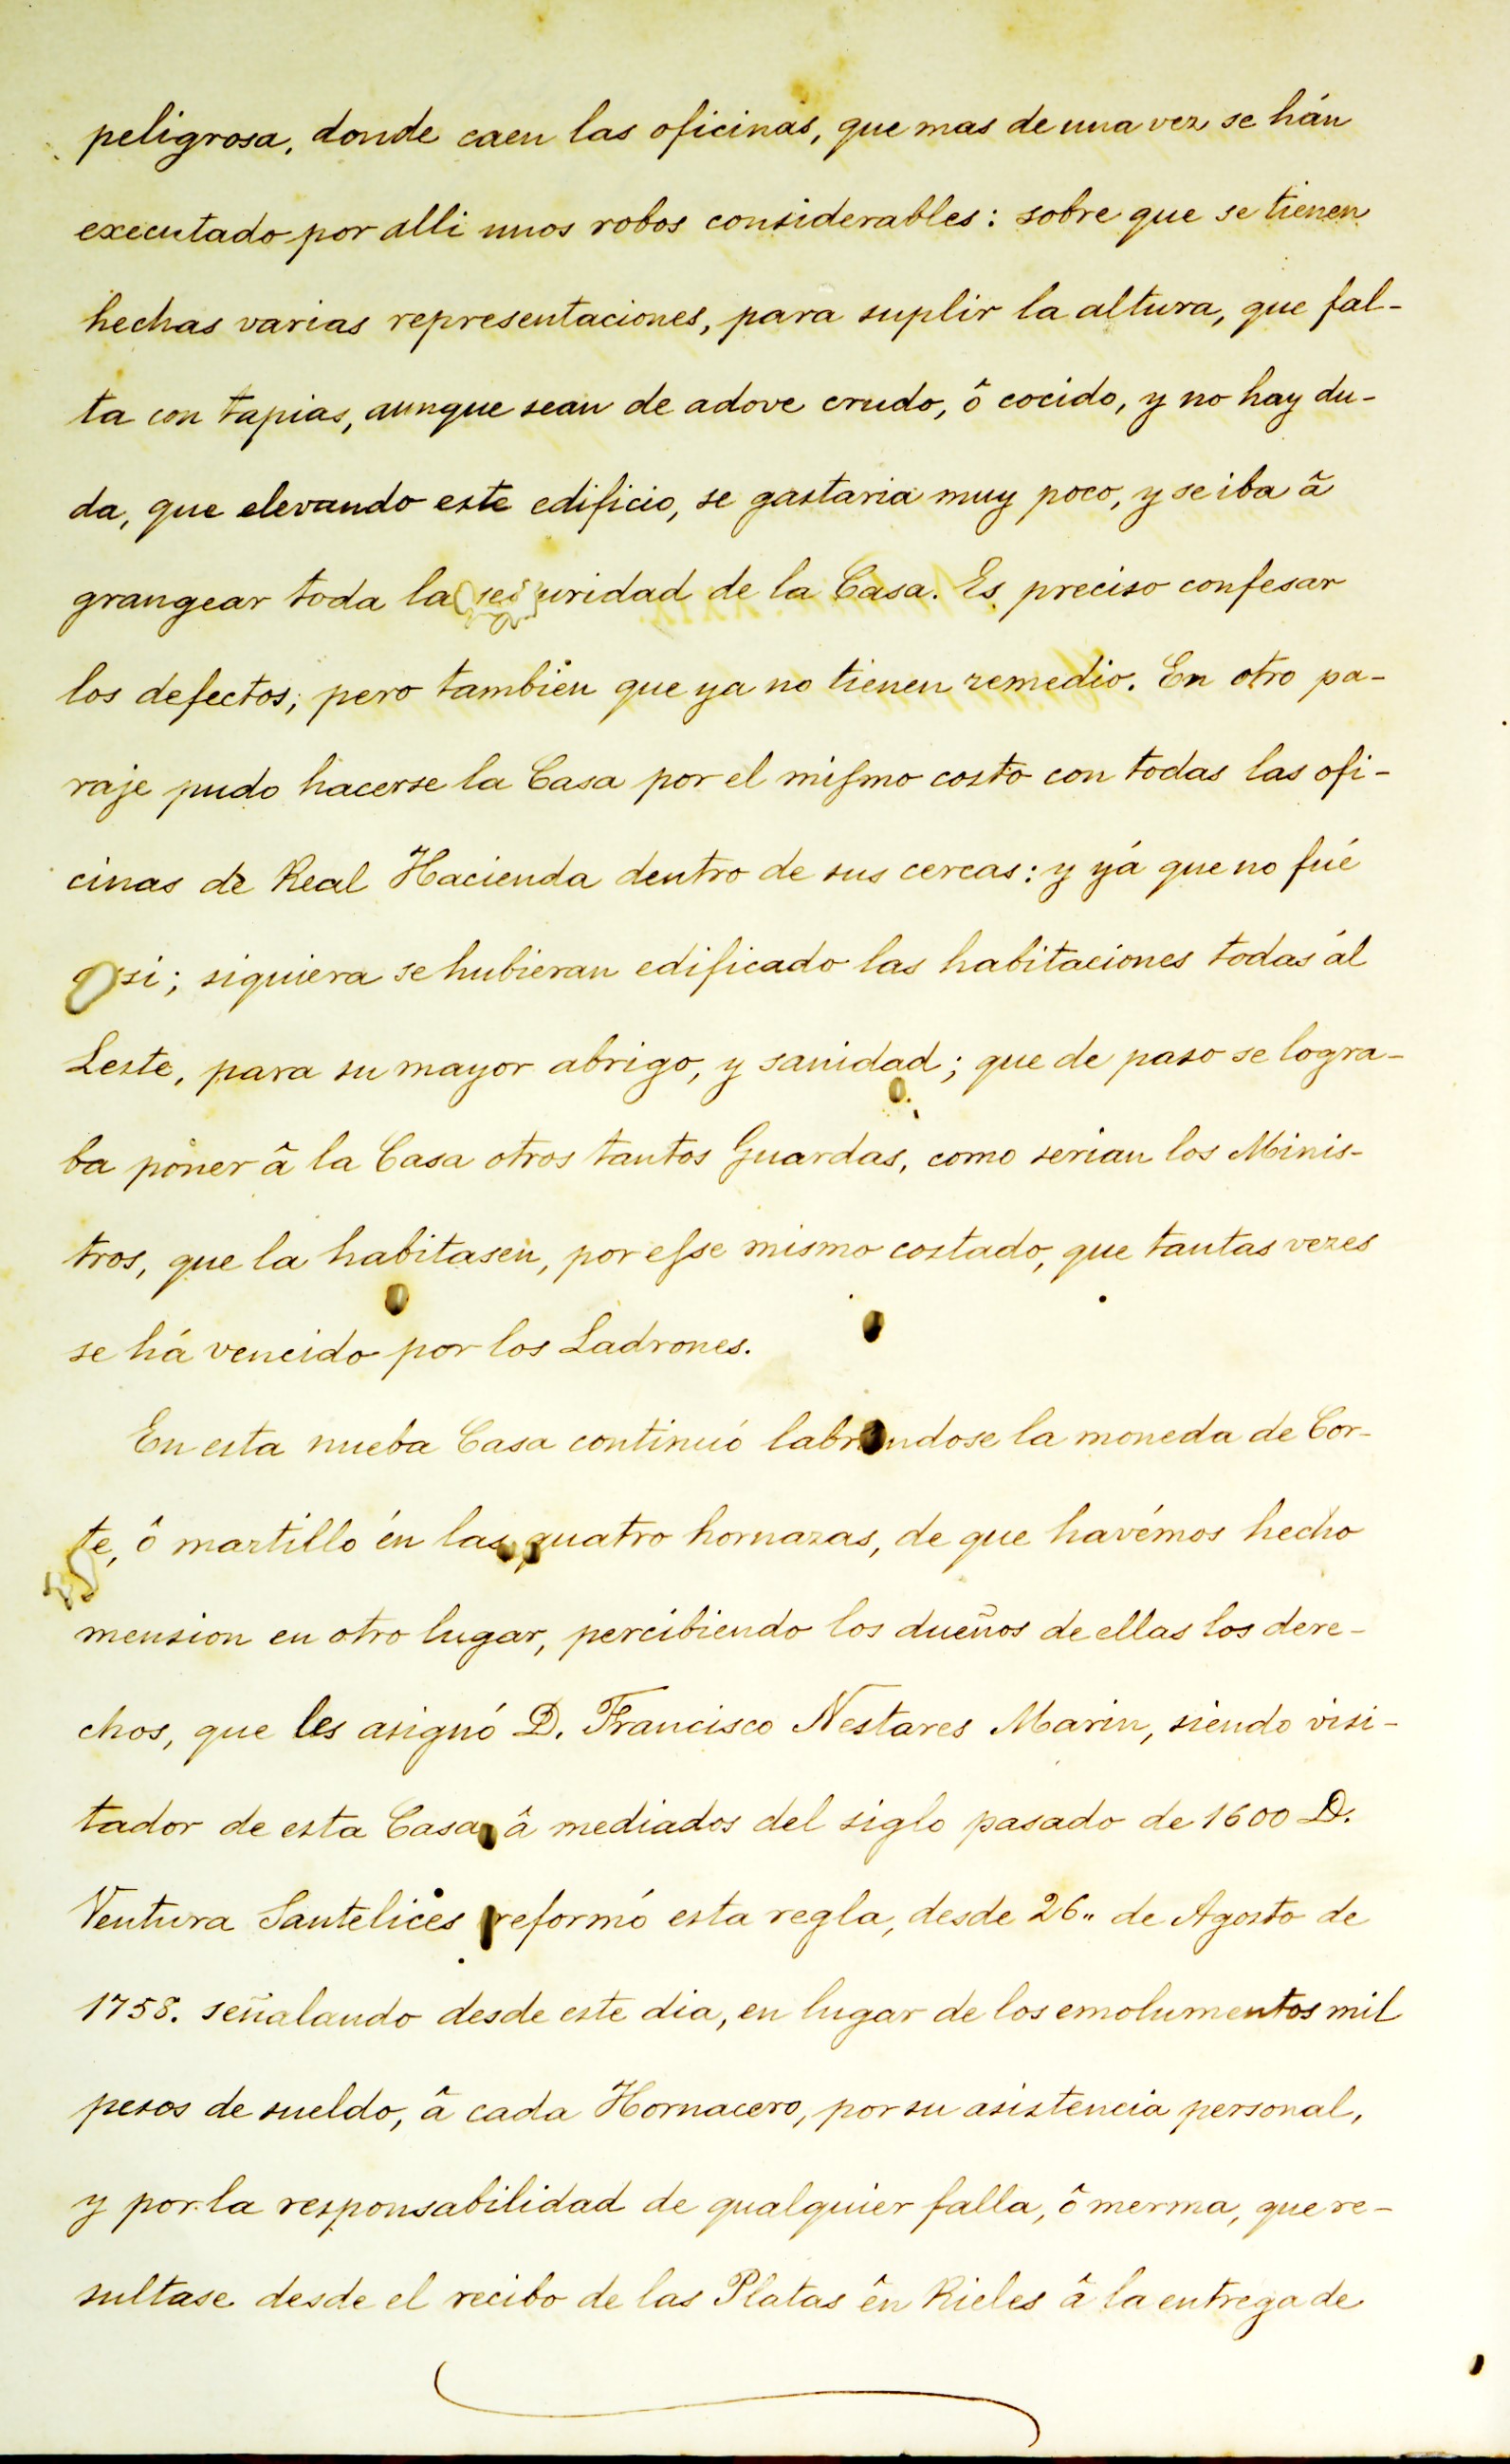 peligrosa, donde caen las oficinas, que mas de una vez se hán
executado por alli unos robos considerables: sobre que se tienen
hechas varias representaciones, para suplir la altura, que fal-
ta con tapias, aunque sean de adove crudo, ô cocido, y no hay du-
da, que elevando este edificio, se gastaria muy poco, y se iba â
grangear toda la seguridad de la Casa. Es preciso confesar
los defectos; pero tambien que ya no tienen remedio. En otro pa-
raje pudo hacerse la Casa por el miſmo costo con todas las ofi-
cinas de Real Hacienda dentro de sus cercas: y yá que no fué
asi; siquiera se hubieran edificado las habitaciones todas ál
Leste, para su mayor abrigo, y sanidad; que de paso se logra-
ba poner â la Casa otros tantos Guardas, como serian los Minis-
tros, que la habitasen, por eſse mismo costado, que tantas vezes
se há vencido por los Ladrones.
En esta nueba Casa continuó labrandose la moneda de Cor-
te, ô martillo én las quatro hornazas, de que havémos hecho
mension en otro lugar, percibiendo los dueños de ellas los dere-
chos, que les asignó D. Francisco Nestares Marin, siendo visi-
tador de esta Casa, â mediados del siglo pasado de 1600 D.
Ventura Santelices reformó esta regla, desde 26,, de Agosto de
1758. señalando desde este dia, en lugar de los emolumentos mil
pesos de sueldo, â cada Hornacero, por su asistencia personal,
y por la responsabilidad de qualquier falla, ô merma, que re-
sultase desde el recibo de las Platas ên Rieles â la entrega de